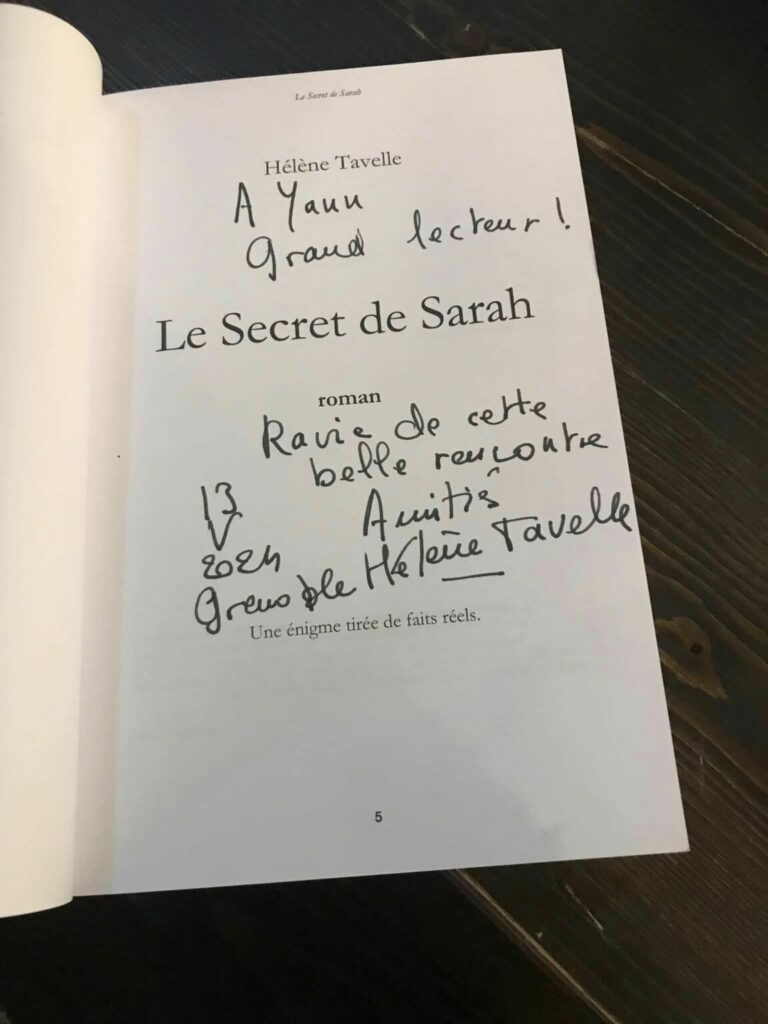 Le Secret de Sarah
Hélène Tavelle
A Yann
Grand lecteur !
Le Secret de Sarah
roman
Ravie de cette
belle rencontre
13
V
2024
Amitiés
Grenoble Hélène Tavelle
Une énigme tirée de faits réels.
5